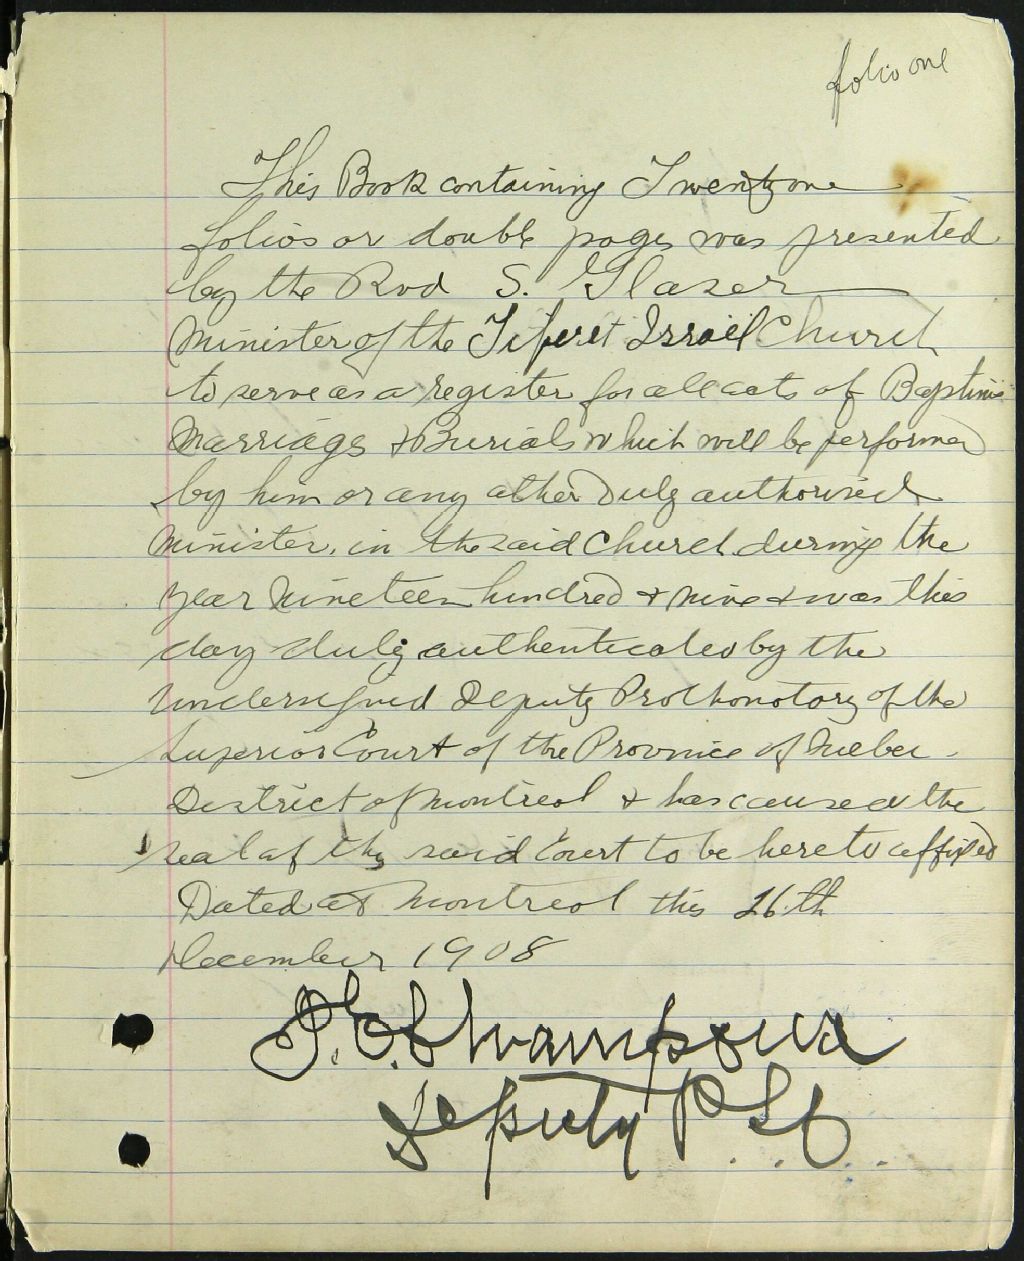 folio one
This Book containing Twenty one
folios or double pages was presented
by the Rvd S. Glazer
Minister of the Tiferet Israel Church
to serve as a register for all acts of Baptims
Marriages & Burials which will be performed
by him or any other duly authorised
Minister, in the said Church during the
year Nineteen hundred & nine & was this
day duly authenticated by the
undersigned Deputy Prothonotary of the
Superior Court of the Province of Quebec
District of Montreal & has caused the
seal of the said Court to be hereto affixed
Dated at Montreal this 26th
December 1908
Deputy P.S.C.